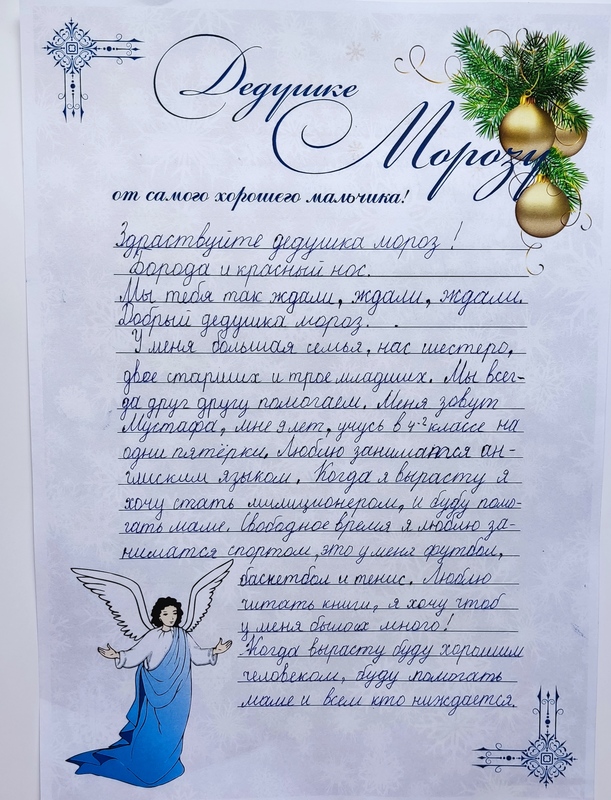 Дедушке
Морозу
от самого хорошего мальчика!
Здраствуйте дедушка мороз!
Борода и красный нос.
Мы тебя так ждали, ждали, ждали.
Добрый дедушка мороз.
У меня большая семья, нас шестеро,
двое старших и трое младших. Мы всег-
да друг другу помогаем. Меня зовут
Мустафа, мне 9 лет, учусь в 4-г классе на
одни пятёрки. Люблю заниматся ан-
глиским языком. Когда я вырасту я
хочу стать милиционером, и буду помо-
гать маме. Свободное время я люблю за-
ниматся спортом, это у меня футбол,
баскетбол и тенис. Люблю
читать книги, я хочу чтоб
у меня было их много!
Когда вырасту буду хорошим
человеком, буду помогать
маме и всем кто ниждается.